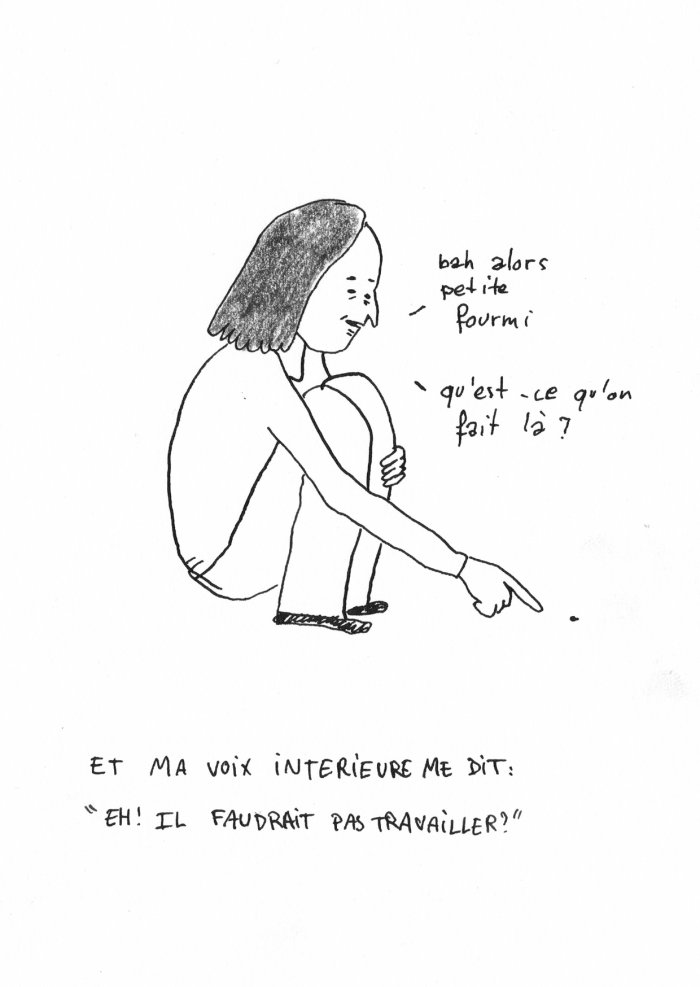 bah alors
petite
fourmi
qu'est-ce qu'on
fait là ?
ET MA VOIX INTERIEURE ME DIT:
"EH! IL FAUDRAIT PAS TRAVAILLER?"